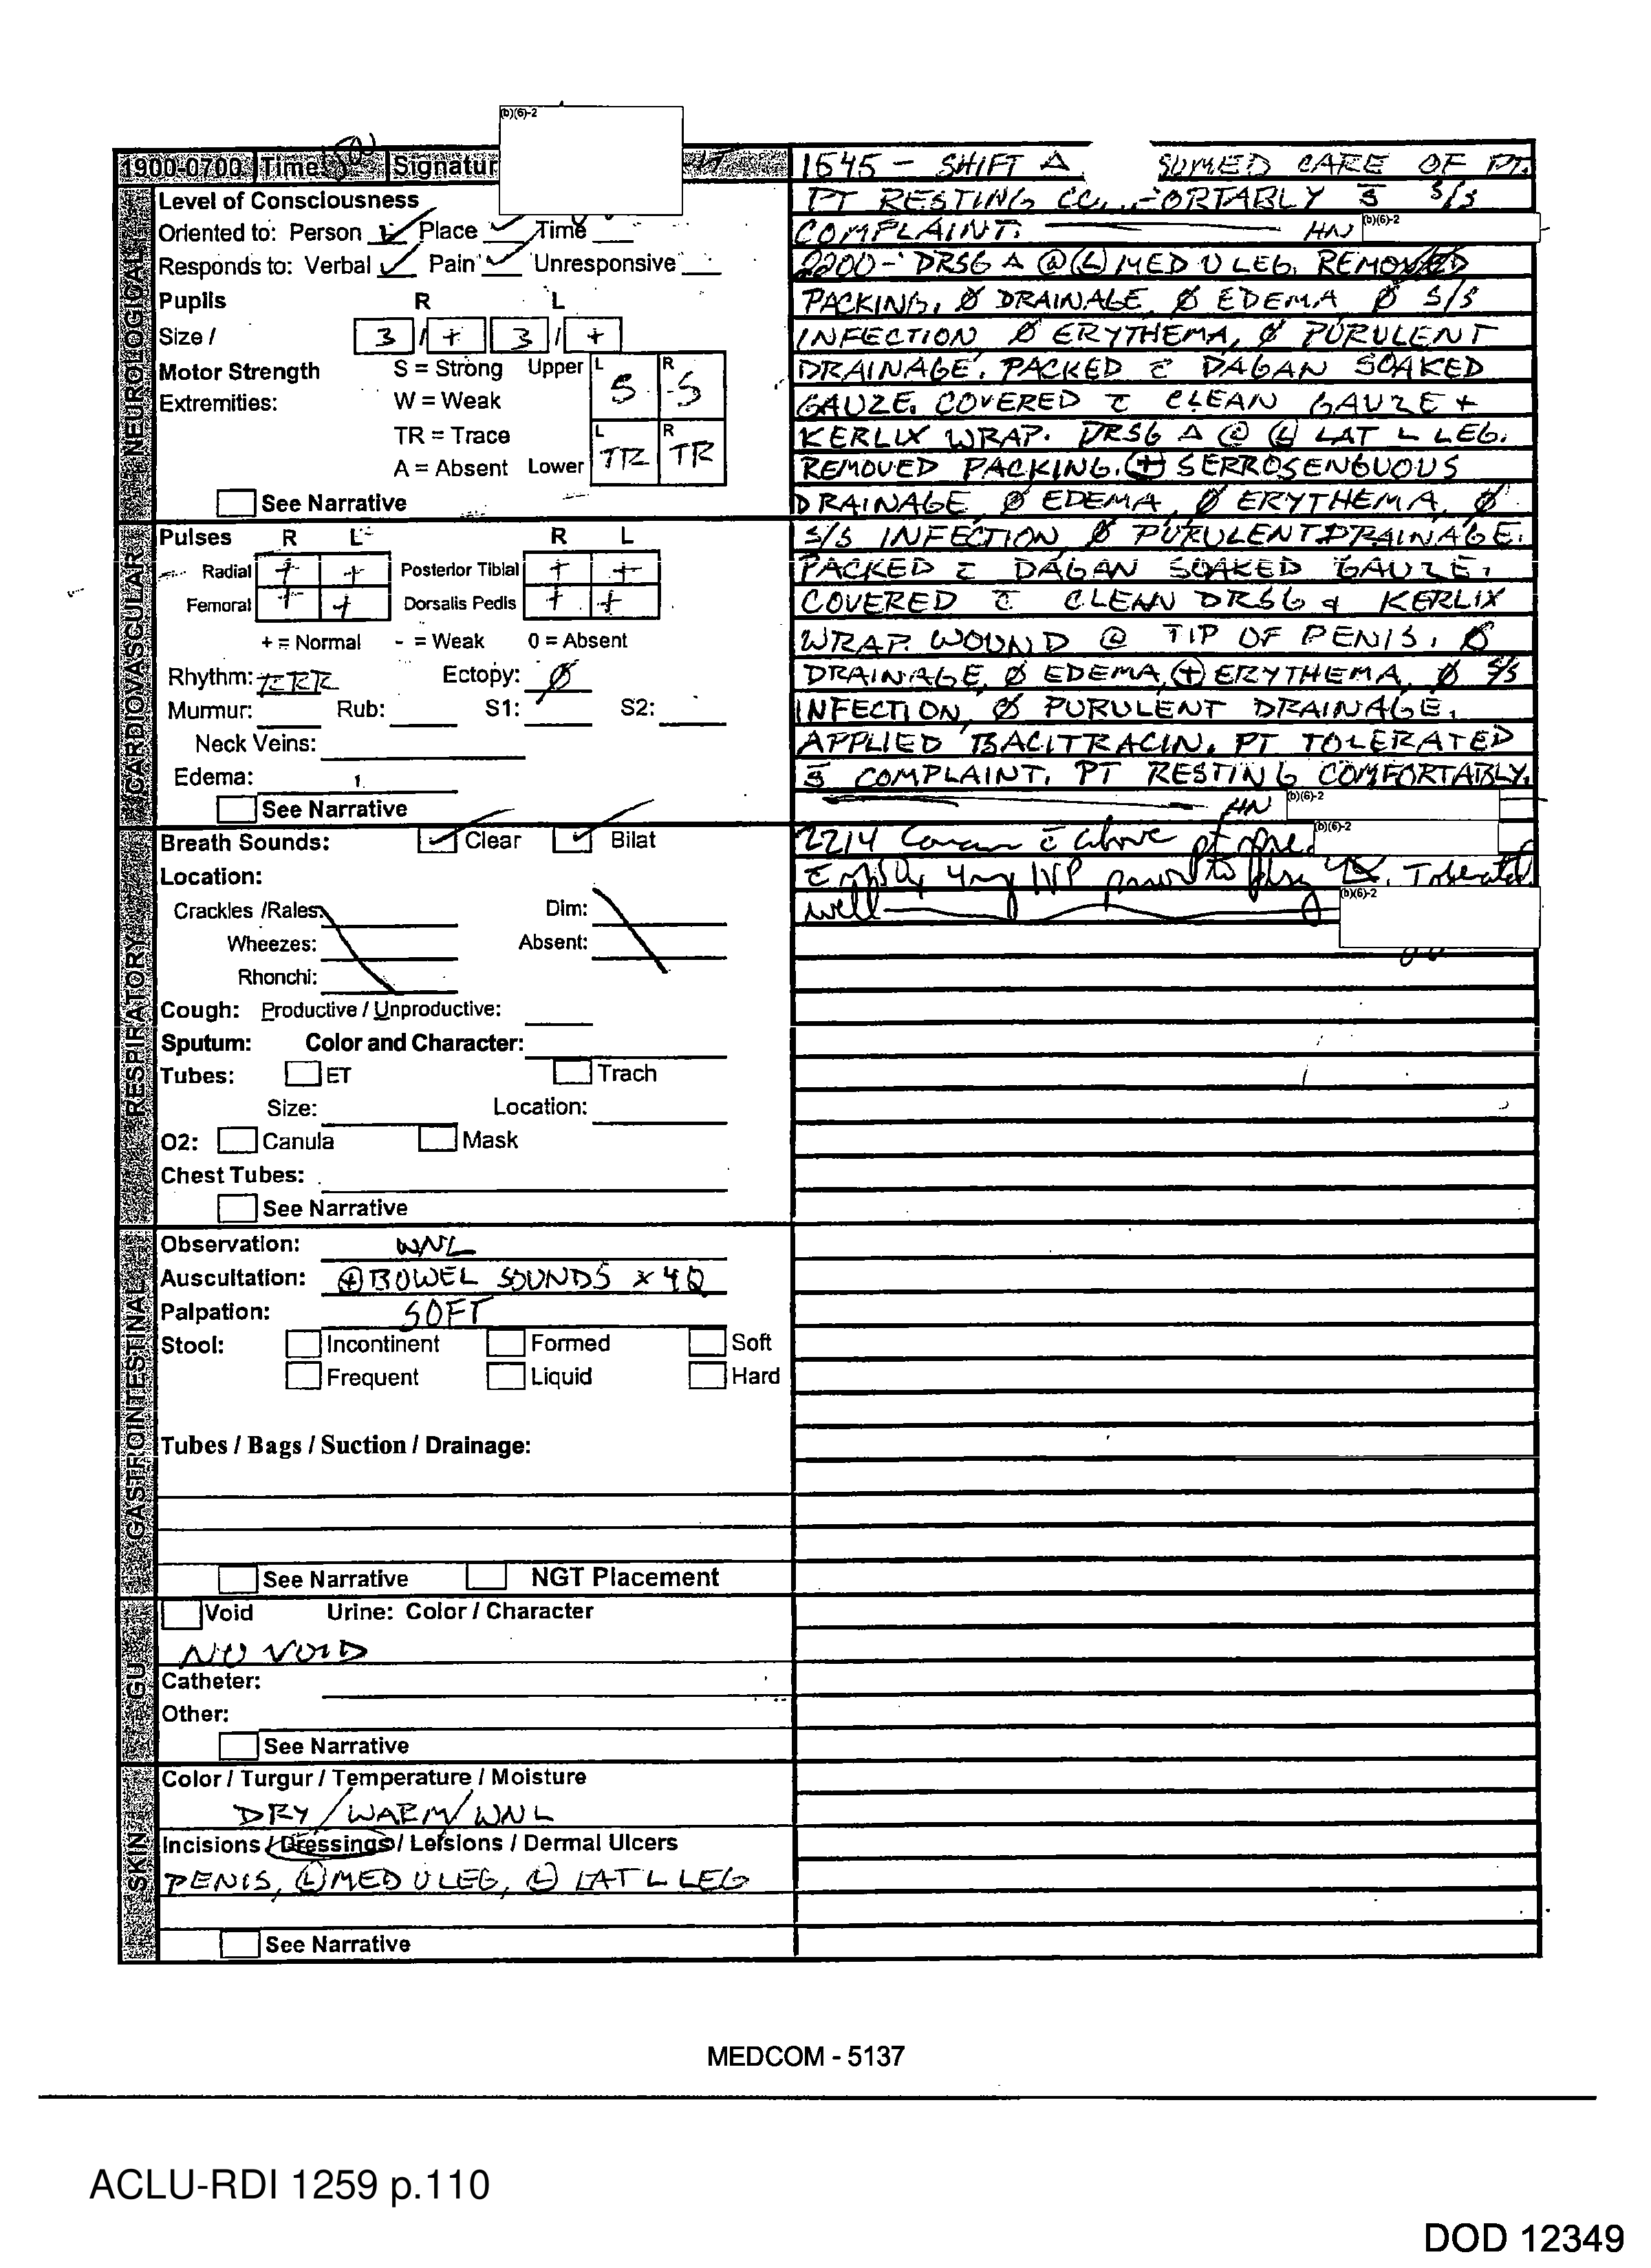 (b)(6)-2
1900-0700 Time Signatur
NEUROLOGICAL
Level of Consciousness
Oriented to: Person ✓ Place ✓ Time
Responds to: Verbal ✓ Pain ✓ Unresponsive
Pupils R L
Size / 3 / + 3 / +
Motor Strength S = Strong Upper L S R S
Extremities: W = Weak
TR = Trace
A = Absent Lower L TR R TR
See Narrative
CARDIOVASCULAR
Pulses R L R L
Radial + + Posterior Tibial + +
Femoral + + Dorsalis Pedis + +
+ = Normal - = Weak 0 = Absent
Rhythm: RRR Ectopy: Ø
Murmur: Rub: S1: S2:
Neck Veins:
Edema:
See Narrative
RESPIRATORY
Breath Sounds: ✓ Clear ✓ Bilat
Location:
Crackles /Rales: Dim:
Wheezes: Absent:
Rhonchi:
Cough: Productive / Unproductive:
Sputum: Color and Character:
Tubes: ET Trach
Size: Location:
O2: Canula Mask
Chest Tubes:
See Narrative
GASTROINTESTINAL
Observation: WNL
Auscultation: ⊕ BOWEL SOUNDS x 4Q
Palpation: SOFT
Stool: Incontinent Formed Soft
Frequent Liquid Hard
Tubes / Bags / Suction / Drainage:
See Narrative NGT Placement
GU
Void Urine: Color / Character
NO VOID
Catheter:
Other:
See Narrative
SKIN
Color / Turgur / Temperature / Moisture
DRY/WARM/WNL
Incisions / Dressings / Leisions / Dermal Ulcers
PENIS, Ⓛ MED U LEG, Ⓛ LAT L LEG
See Narrative
1545 - SHIFT Δ SUMED CARE OF PT.
PT RESTING CO ORTABLY s̄ S/S
COMPLAINT. HN (b)(6)-2
2200 - DRSG Δ @ Ⓛ MED U LEG. REMOVED
PACKING. Ø DRAINAGE, Ø EDEMA Ø S/S
INFECTION Ø ERYTHEMA, Ø PURULENT
DRAINAGE. PACKED c̄ DAGAN SOAKED
GAUZE. COVERED c̄ CLEAN GAUZE +
KERLIX WRAP. DRSG Δ @ Ⓛ LAT L LEG.
REMOVED PACKING. ⊕ SERROSENGUOUS
DRAINAGE Ø EDEMA, Ø ERYTHEMA, Ø
S/S INFECTION Ø PURULENT DRAINAGE.
PACKED c̄ DAGAN SOAKED GAUZE.
COVERED c̄ CLEAN DRSG & KERLIX
WRAP. WOUND @ TIP OF PENIS. Ø
DRAINAGE, Ø EDEMA, ⊕ ERYTHEMA, Ø S/S
INFECTION, Ø PURULENT DRAINAGE.
APPLIED BACITRACIN. PT TOLERATED
s̄ COMPLAINT. PT RESTING COMFORTABLY.
HN (b)(6)-2
2214 Concur c̄ above pt (b)(6)-2
c̄ 4mg IVP prior to Tolerated
well (b)(6)-2
MEDCOM - 5137
ACLU-RDI 1259 p.110
DOD 12349